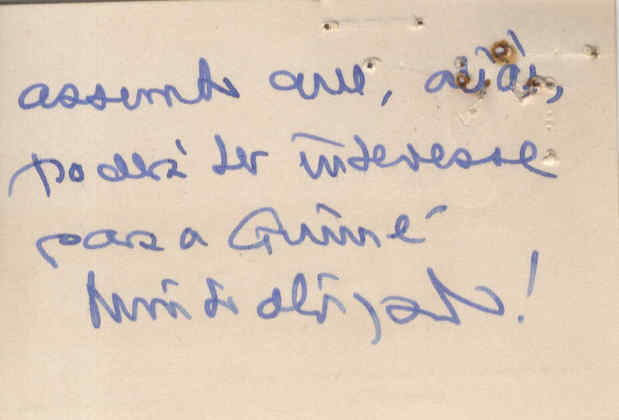 assunto que, aliás,
poderá ter interesse
para a Guiné
Muito obrigado!